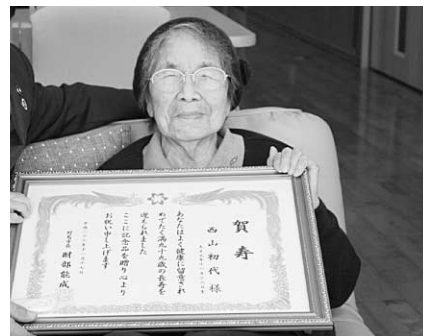 賀寿
西山初代様
あなたはよく健康に留意され
めでたく満九十九歳の長寿を
迎えられました
ここに記念品を贈り心より
お祝い申し上げます
財部能成